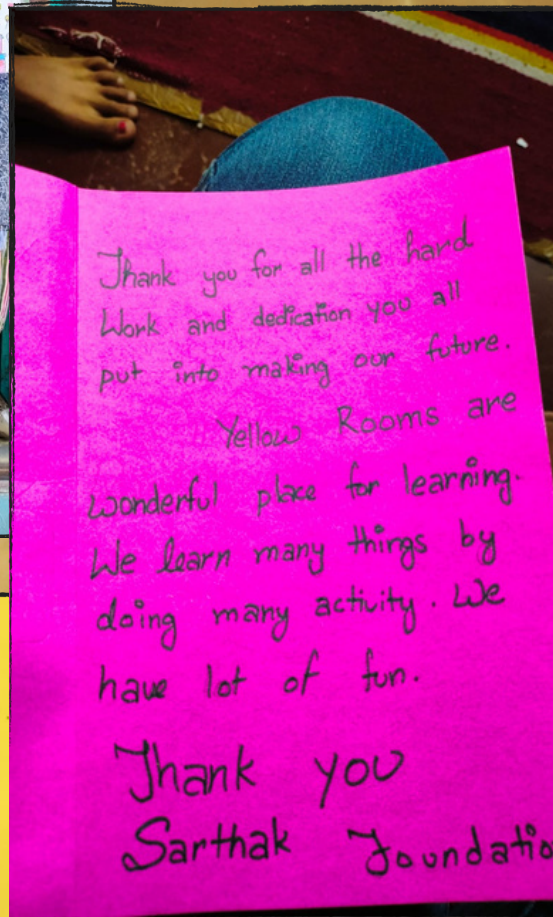 Thank you for all the hard
Work and dedication you all
put into making our future.
Yellow Rooms are
wonderful place for learning.
We learn many things by
doing many activity. We
have lot of fun.
Thank you
Sarthak Foundatio